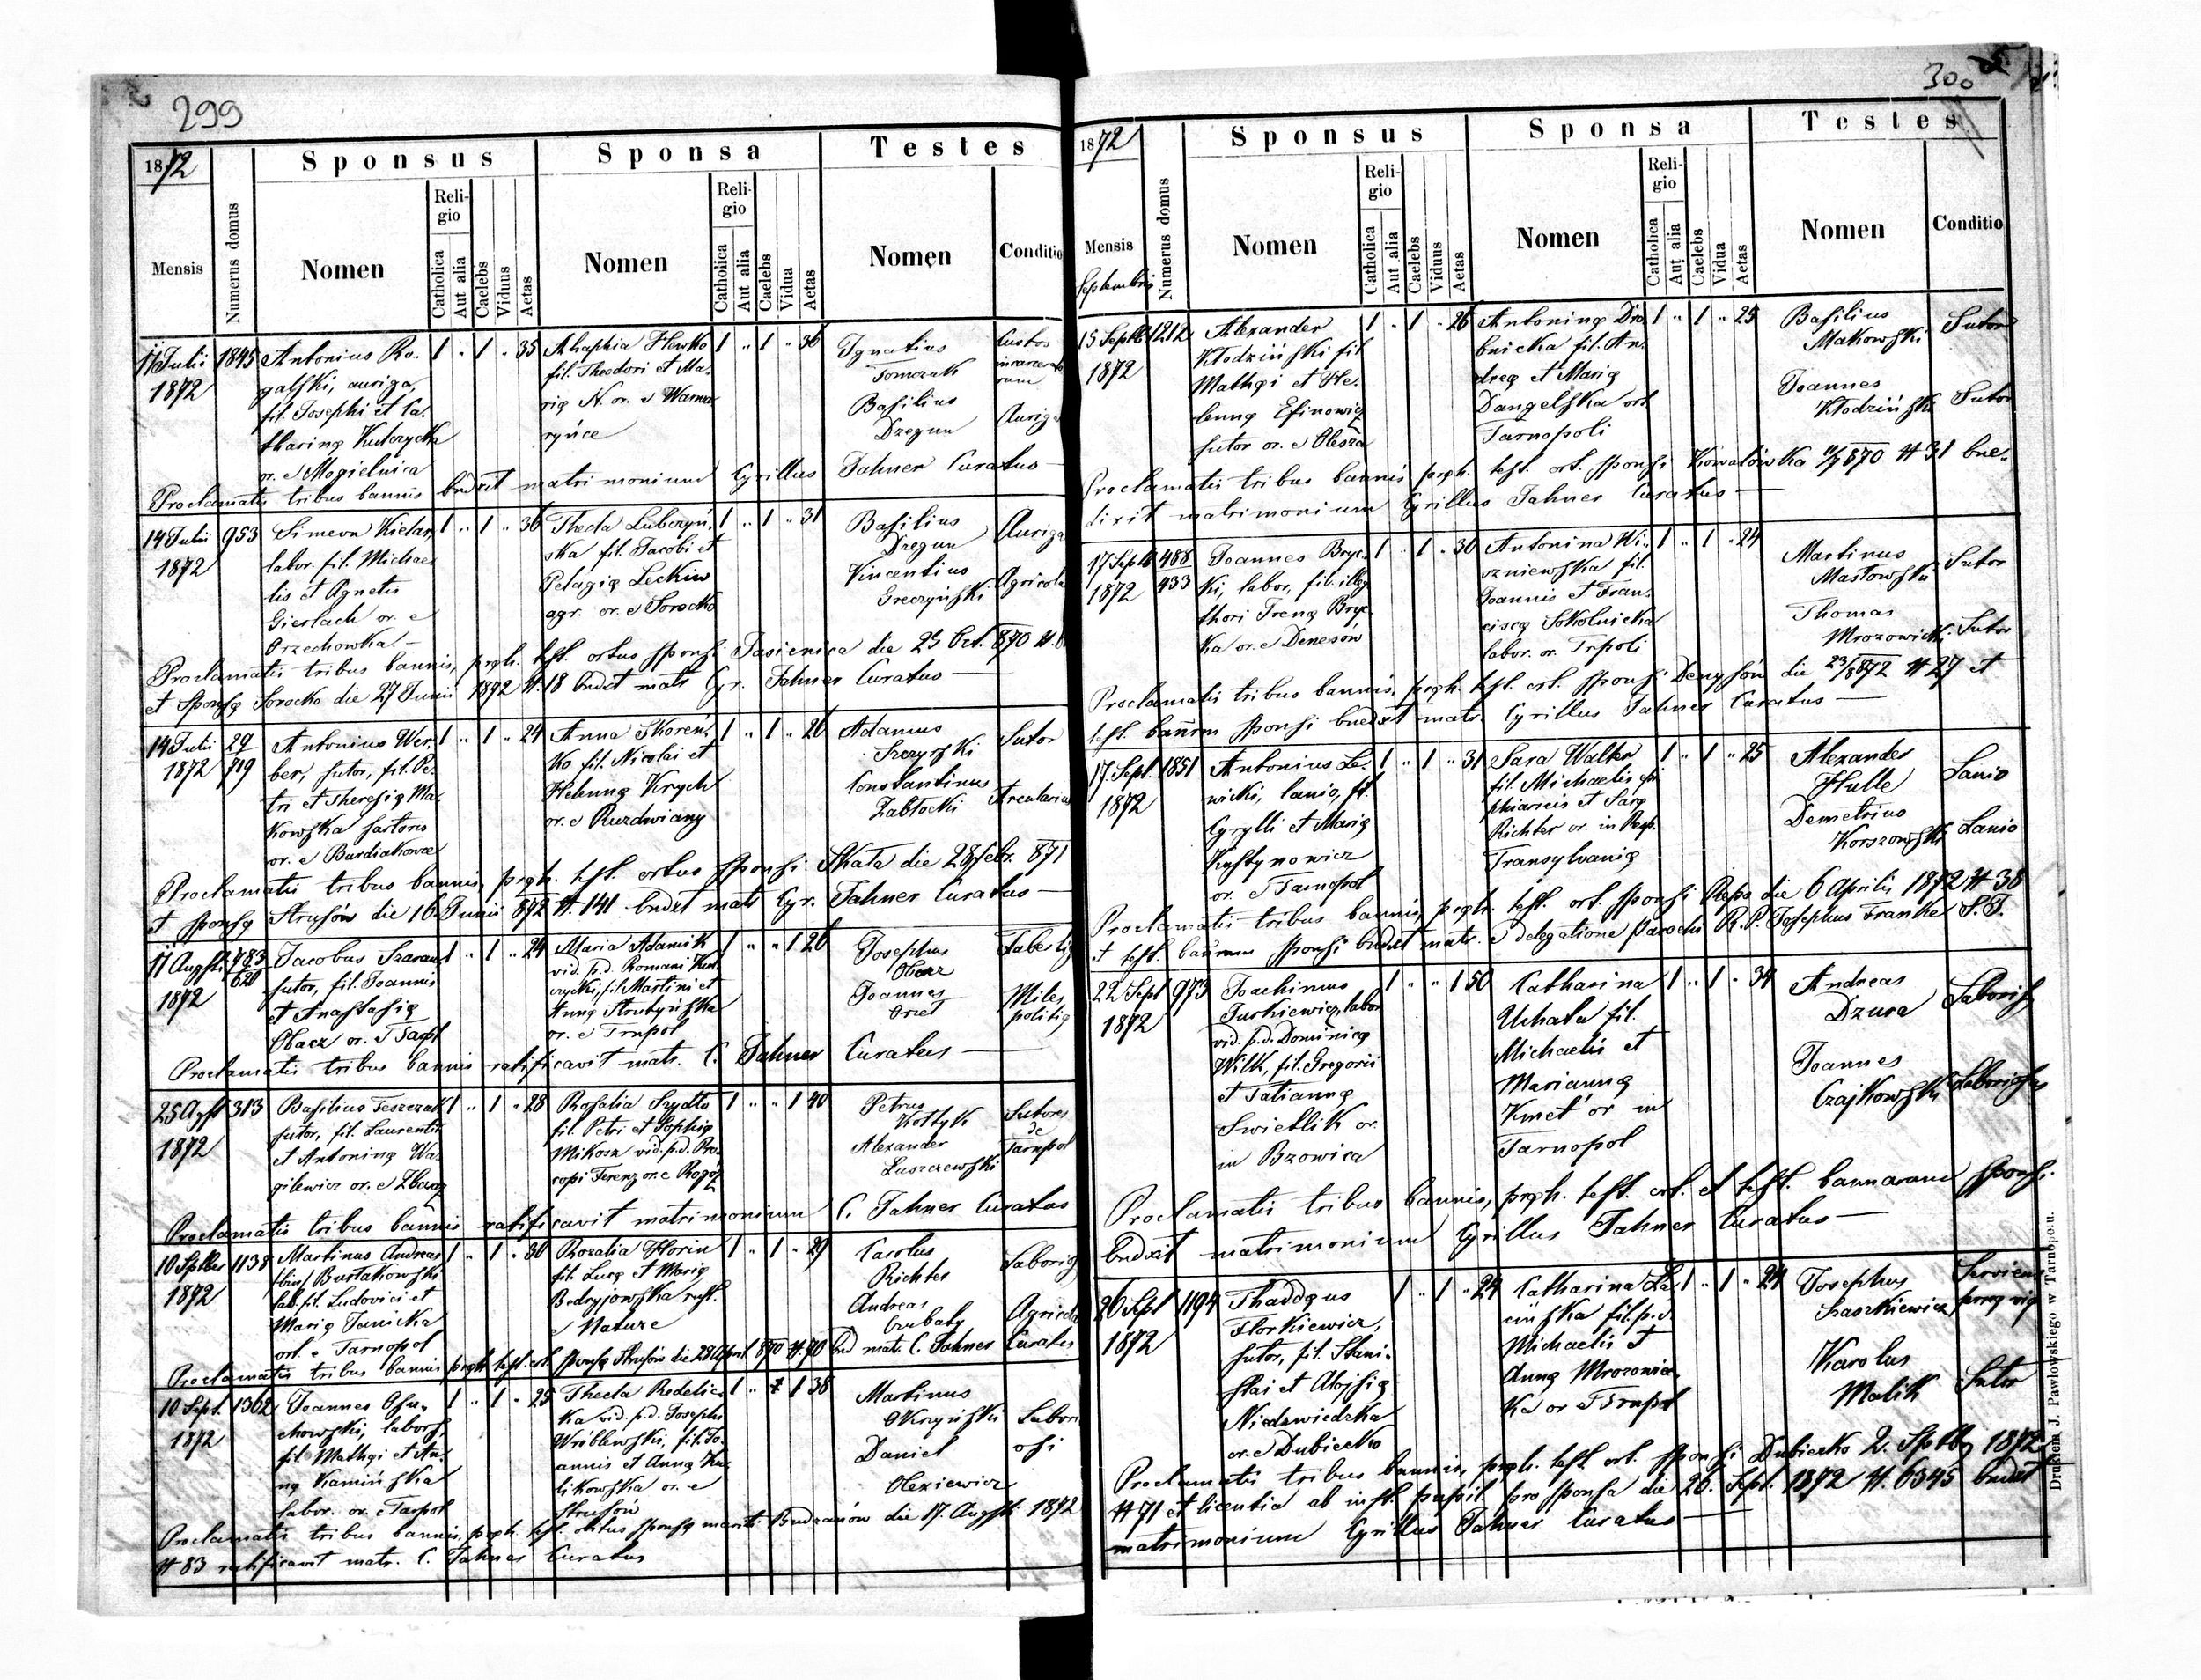 299
1872
Sponsus
Sponsa
Testes
Mensis
Numerus domus
Nomen
Religio
Catholica
Aut alia
Caelebs
Viduus
Aetas
Nomen
Religio
Catholica
Aut alia
Caelebs
Vidua
Aetas
Nomen
Conditio
11 Julii
1872
1845
Antonius Ro-
galski, auriga,
fil. Josephi et Ca-
tharina Kulczycka
or. e Mogielnica
1 " 1 " 35
Ahaphia Hewko
fil. Theodori et Ma-
ria N. or. e Warwa
ryńce
1 " 1 " 36
Ignatius
Tomczak
Custos
incarcerato
rum
Basilius
Dzegun
Auriga
Proclamatis tribus bannis bndxit matrimonium Cyrillus Jahner Curatus
14 Julii
1872
953
Simeon Kielar,
labor. fil. Michae
lis et Agnetis
Gierlach or. e
Orzechowka
1 " 1 " 36
Thecla Luboryń-
ska fil. Jacobi et
Pelagia Leckiw
agr. or. e Sorocko
1 " 1 " 31
Basilius
Dzegun
Auriga
Vincentius
Greczyński
Agricola
Proclamatis tribus bannis, prgh. test. ortus sponsi Jasienica die 23 Oct. 870 #.
et Sponsa Sorocko die 27 Junii 1872 #.18 bndxt matr Cyr. Jahner Curatus
14 Julii
1872
29
719
Antonius Wer-
ber, sutor, fil. Pe-
tri et Theresia Ma-
kowska sartoris
or. e Burdiakowce
1 " 1 " 24
Anna Skoreń-
ko fil. Nicolai et
Helena Krych
or. e Ruzdwiany
1 " 1 " 26
Adamus
Szczyrski
Sutor
Constantinus
Zabłocki
Arcularius
Proclamatis tribus bannis, prgh. test. ortus sponsi Skała die 28 febr. 871
et sponsa Strusów die 16. Junii 872 #. 141 bndxt matr Cyr. Jahner Curatus
11 Augsti
1872
783
620
Jacobus Szaran
sutor, fil. Joannis
et Anastasia
Obacz or. e Tarpl
1 " 1 " 24
Maria Adamik
vid. p.d. Romani Kul
czycki, fil. Martini et
Anna Strutyńska
or. e Trnpol
1 " " 1 26
Josephus
Obacz
Joannes
Orzeł
Miles
politia
Proclamatis tribus bannis ratificavit matr. C. Jahner Curatus
25 Agst
1872
313
Basilius Teszczak
sutor, fil. Laurentii
et Antonina Wa-
gilewicz or. e Zbaraz
1 " 1 " 28
Rosalia Szydło
fil. Petri et Sophia
Mikosz vid. p.d. Pro-
copi Ferenz or. e Rogóz
1 " " 1 40
Petrus
Kottyk
Alexander
Łuszczewski
Sutores
de
Tarnpol
Proclamatis tribus bannis ratificavit matrimonium C. Jahner Curatus
10 Sptber
1872
1138
Martinus Andreas
/bin/ Burtakowski
lab. fil. Ludovici et
Maria Janicka
ort. e Tarnopol
1 " 1 " 30
Rozalia Florin
fil. Luca et Maria
Bedryjowska rust.
e Nature
1 " 1 " 29
Carolus
Richter
Andreas
Agricola
Proclamatis tribus bannis prgh. test. ort. sponsa Strusów die 28 April 870 #.70 bnd matr. C. Jahner Curatus
10 Sept.
1872
1362
Joannes Osu-
chowski, labors,
fil. Mathai et An-
na Kamińska
labor. or. e Tarpol
1 " 1 " 25
Thecla Redelic-
ka vid. p.d. Josephi
Wróblewski, fil. Jo-
annis et Anna Ku-
likowska or. e
Strusów
1 " 1 38
Martinus
Okryński
Daniel
Olexiewicz
Labori
osi
Proclamatis tribus bannis, prgh. test. obitus sponsa mariti Budzanów die 17. Augsti 1872
# 83 ratificavit matr. C. Jahner Curatus
300
1872
Sponsus
Sponsa
Testes
Mensis
Septembris
Numerus domus
Nomen
Religio
Catholica
Aut alia
Caelebs
Viduus
Aetas
Nomen
Religio
Catholica
Aut alia
Caelebs
Vidua
Aetas
Nomen
Conditio
15 Septb
1872
1212
Alexander
Kłodziński fil
Mathai et He-
lena Efinowicz
sutor or. e Olesza
1 " 1 " 26
Antonina Dro-
bnicka fil. An-
drea et Maria
Dangelska ort
Tarnopoli
1 " 1 " 25
Basilius
Makowski
Sutor
Joannes
Kłodziński
Sutor
Proclamatis tribus bannis prgh. test. ort. sponsi Kowalówka 870 # 31 bne-
dixit matrimonium Cyrillus Jahner Curatus
17 Septb
1872
488
433
Joannes Bryc-
ki, labor, fil. illeg
thori Irena Bryc-
ka or. e Denesów
1 " 1 " 30
Antonina Wi-
szniewska fil.
Joannis et Fran-
cisca Sokolnicka
labor. or. Trpoli
1 " 1 " 24
Martinus
Masłowski
Sutor
Thomas
Mrozowicki
Sutor
Proclamatis tribus bannis, prgh. test. ort. sponsi Denysów die 23/8 872 # 27 et
test. bannrm sponsi bnedxt matr. Cyrillus Jahner Curatus
17 Sept.
1872
1851
Antonius Le-
wicki, lanio, fil.
Cyrylli et Maria
Kustynowicz
or. e Tarnopol
1 " 1 " 31
Sara Walter
fil. Michaelis
phiaricis et Sara
Richter or. in Reps.
Transylvania
1 " 1 " 25
Alexander
Hulle
Lanio
Demetrius
Korszowski
Lanio
Proclamatis tribus bannis, prgh. test. ort. sponsi Reps die 6 Aprilis 1872 # 38
et test. bannrum sponsi bndxt matr. e delegatione Parochi R.P. Josephus Franke S.J.
22 Sept
1872
973
Joachimus
Jurkiewicz, labor
vid. p.d. Dominica
Wilk, fil. Gregorii
et Tatianna
Swietlik or.
in Bzowica
1 " " 1 50
Catharina
Uchala fil.
Michaelis et
Marianna
Kmet' or in
Tarnopol
1 " 1 " 34
Andreas
Dzura
Joannes
Czajkowski
Laboriosus
Proclamatis tribus bannis, prgh. test. ort. et test. bannarum sponsi
bndxit matrimonium Cyrillus Jahner Curatus
26 Sept
1872
1194
Thaddaus
Florkiewicz,
sutor, fil. Stani-
slai et Alojsia
Niedzwiedzka
or. e Dubiecko
1 " 1 " 24
Catharina La-
cińska fil. p.d.
Michaelis et
Anna Mrozowic-
ka or e Trnpol
1 " 1 " 24
Josephus
Laszkiewicz
Karolus
Malik
Sutor
Proclamatis tribus bannis, prgh. test. ort. sponsi Dubiecko 2. Sptbr 1872
# 71 et licentia ab inst. pupil. pro sponsa die 26. Sept. 1872 #. 6345 bndxt
matrimonium Cyrillus Jahner Curatus
Drukiem J. Pawłowskiego w Tarnopolu.